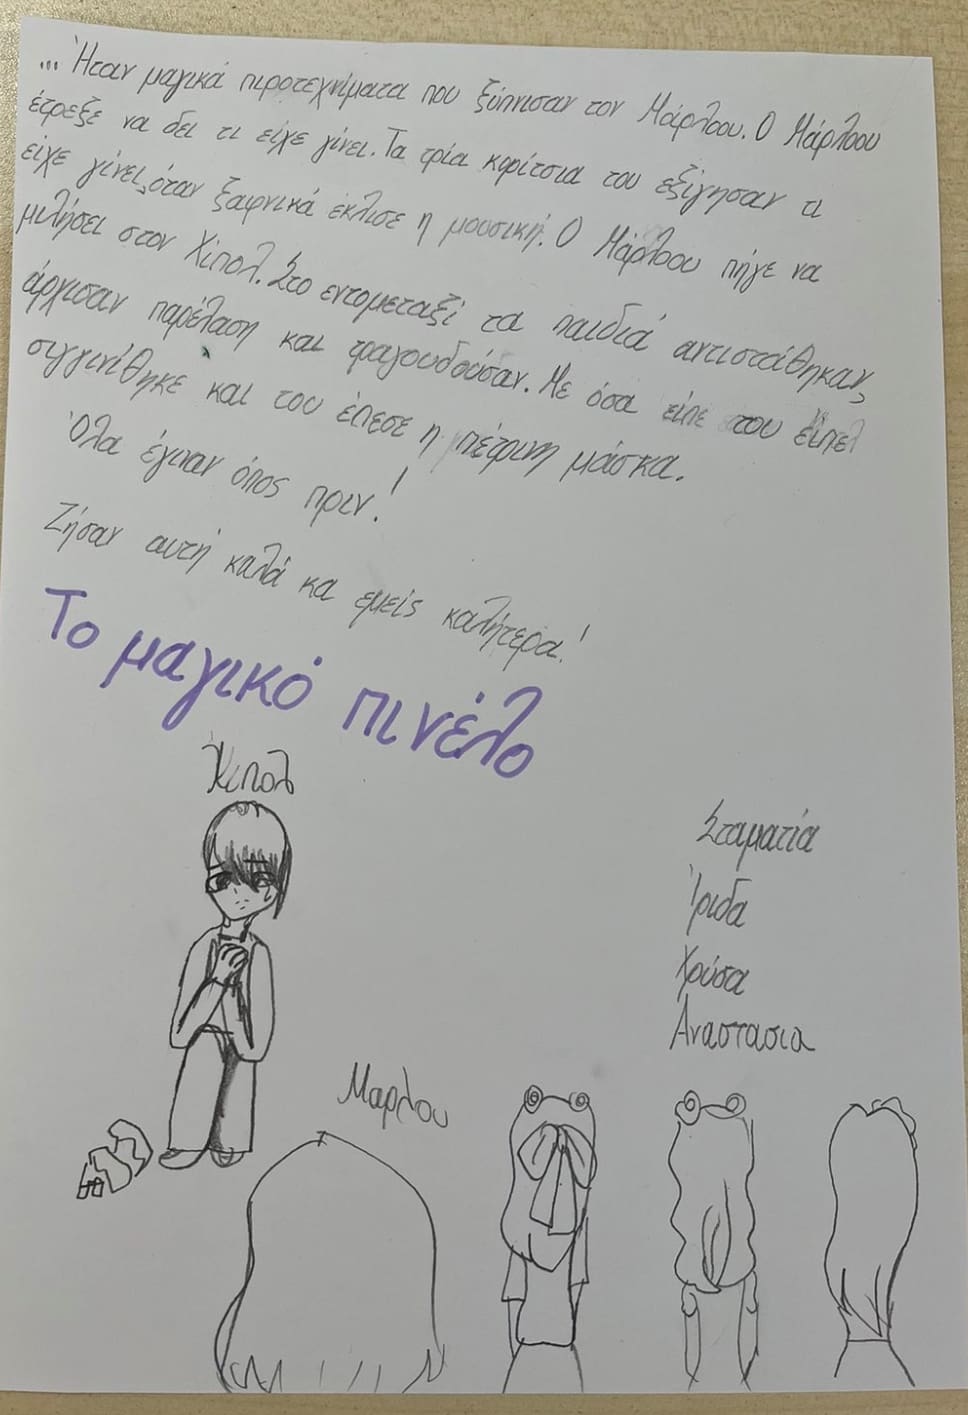 ... Ήταν μαγικά πιροτεχνίματα που ξύπνισαν τον Μάρλοου. Ο Μάρλοου
έτρεξε να δει τι είχε γίνει. Τα τρία κορίτσια του εξίγησαν τι
είχε γίνει, όταν ξαφνικά έκλισε η μουσική. Ο Μάρλοου πήγε να
μιλήσει στον Χίπολ. Στο εντομεταξί τα παιδιά αντιστάθηκαν,
άρχισαν παρέλαση και τραγουδούσαν. Με όσα είπε του είπε
σιγγινήθηκε και του έπεσε η πέτρινη μάσκα.
Όλα έγιναν όπος πριν!
Ζήσαν αυτή καλά κα εμείς καλήτερα!
Το μαγικό πινέλο
Χιπολ
Σταματία
Ίριδα
Χρύσα
Αναστασια
Μαρλου